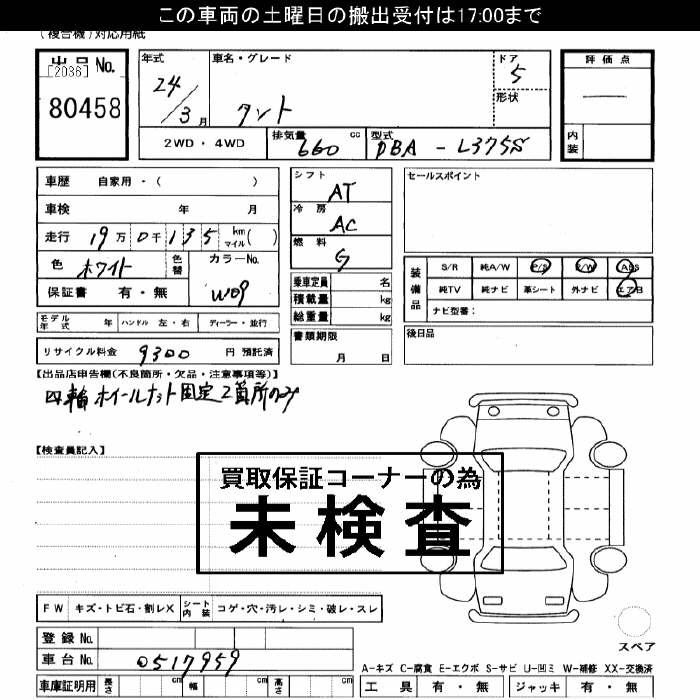 この車両の土曜日の搬出受付は17:00まで
(複合機)対応用紙
出品No.
[2036]
80458
年式
24/3月
車名・グレード
タント
ドア
5
形状
評価点
内装
2WD・4WD
排気量
660
cc
型式
DBA - L375S
車歴 自家用・( )
車検 年 月
走行 19万0千135 km マイル( )
色 ホワイト
色替
カラーNo.
W09
保証書 有・無
モデル年式 年
ハンドル 左・右
ディーラー・並行
リサイクル料金 9300 円 預託済
シフト
AT
冷房
AC
燃料
G
乗車定員 名
積載量 kg
総重量 kg
書類期限
月 日
セールスポイント
装備品
S/R 純A/W P/S P/W ABS
純TV 純ナビ 革シート 外ナビ エアB
ナビ型番:
後日品
【出品店申告欄(不良箇所・欠品・注意事項等)】
四輪ホイールナット固定2箇所のみ
【検査員記入】
買取保証コーナーの為
未検査
FW キズ・トビ石・割レX
シート内装 コゲ・穴・汚レ・シミ・破レ・スレ
登録No.
車台No. 0517959
車庫証明用 長さ cm 幅 cm 高さ cm
スペア
A-キズ C-腐食 E-エクボ S-サビ U-凹ミ W-補修 XX-交換済
工具 有・無 ジャッキ 有・無